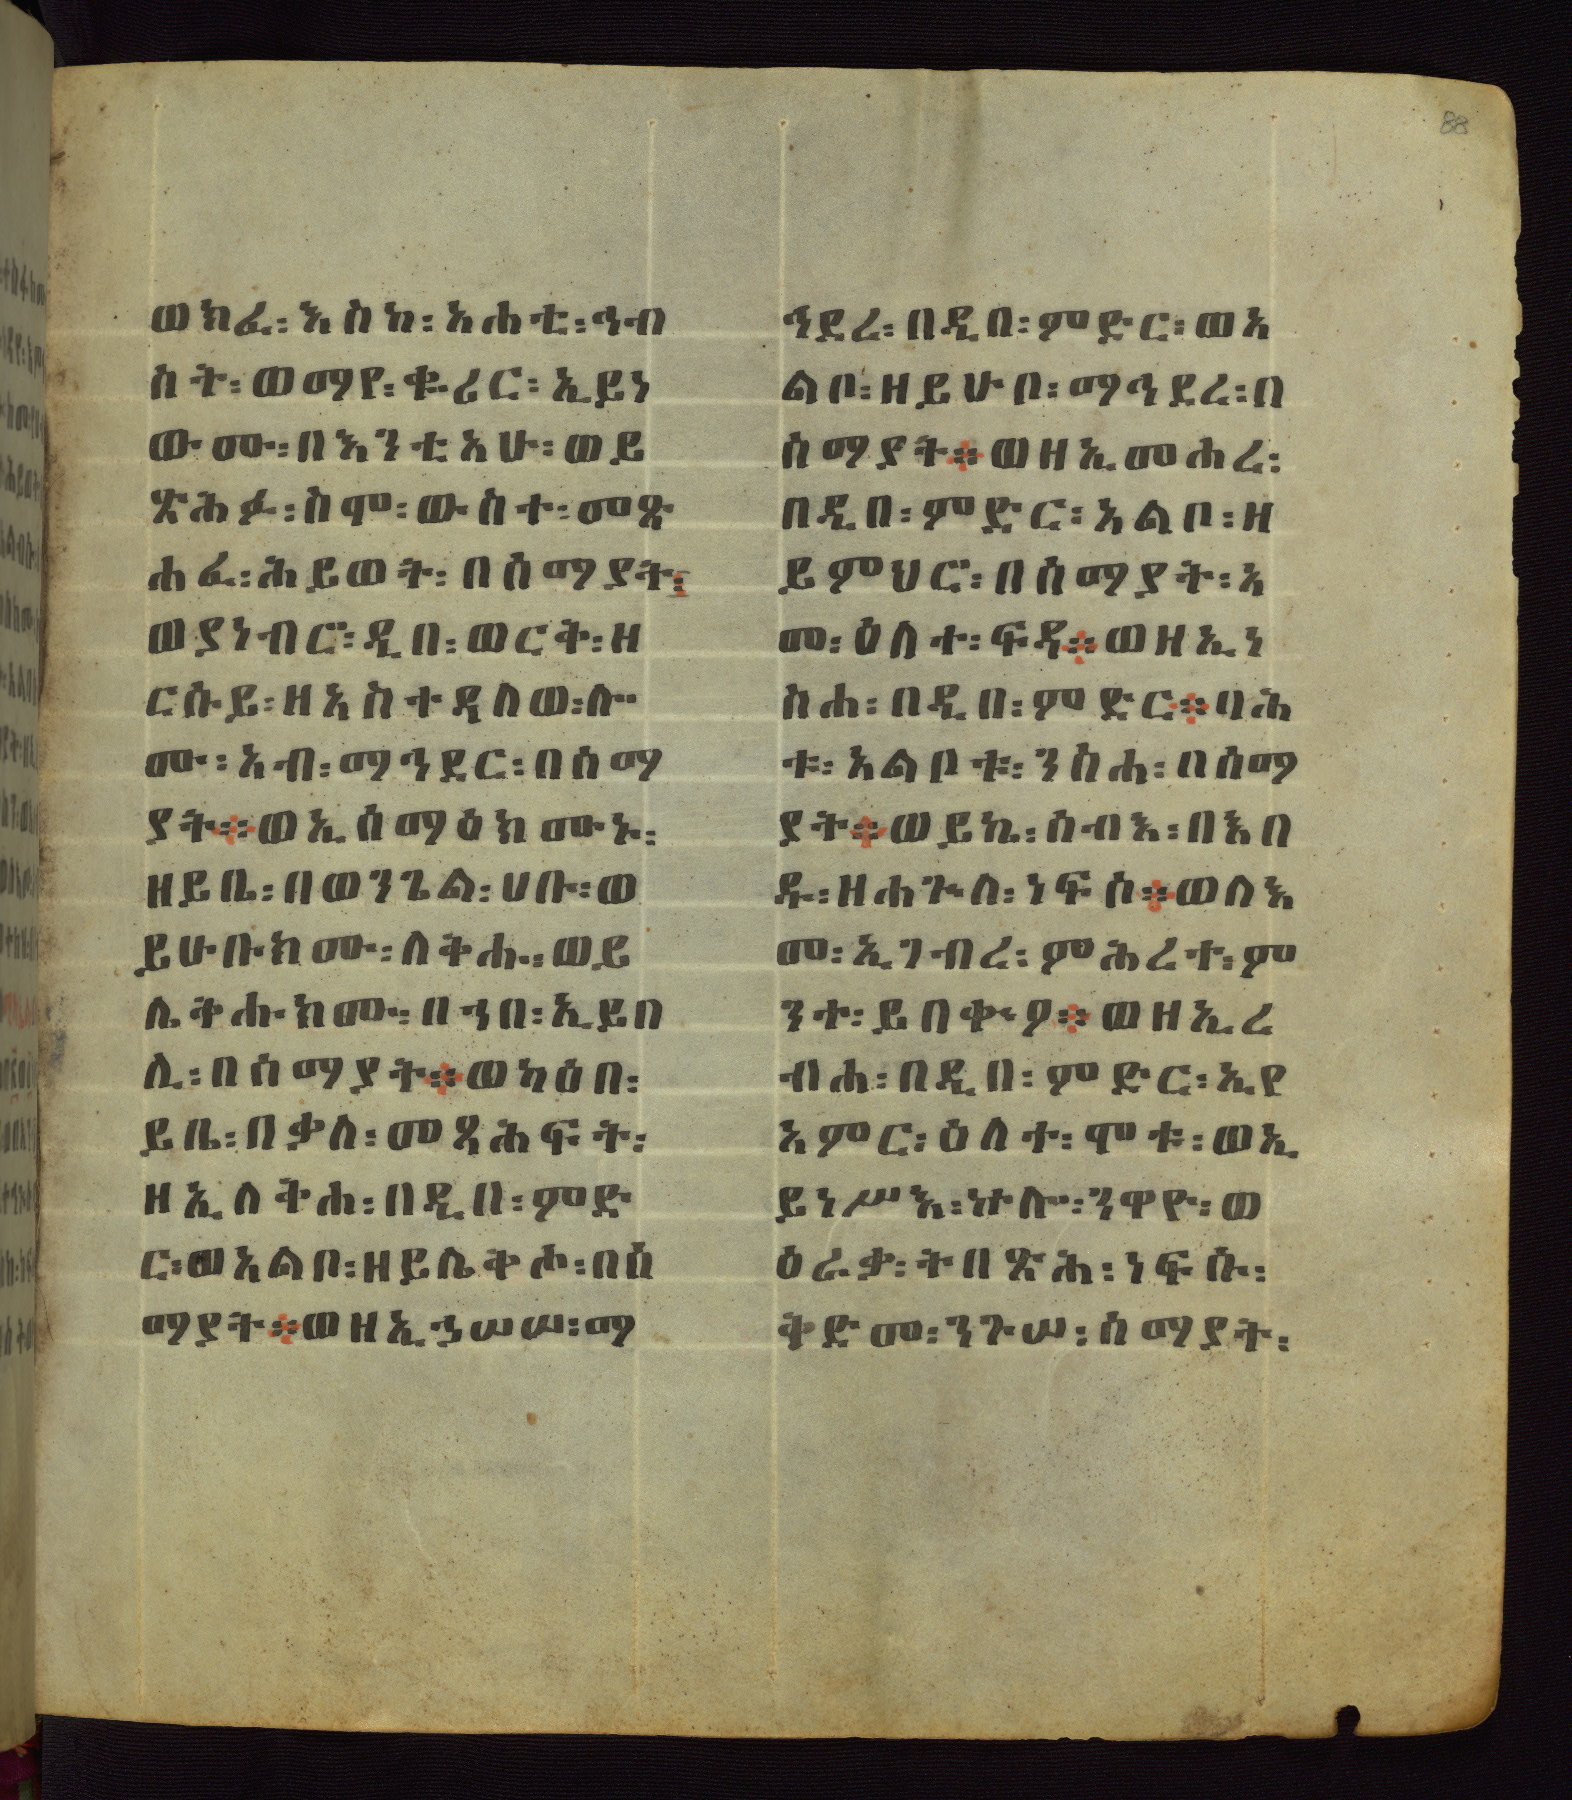 88
ወክፈ፡ እስከ፡ አሐቲ፡ ኅብ
ስት፡ ወማየ፡ ቈሪር፡ ኢይነ
ውሙ፡ በእንቲአሁ፡ ወይ
ጽሕፉ፡ ስሞ፡ ውስተ፡ መጽ
ሐፈ፡ ሕይወት፡ በሰማያት፡
ወያነብር፡ ዲበ፡ ወርቅ፡ ዘ
ርሱይ፡ ዘአስተዳለወ፡ ሎ
ሙ፡ አብ፡ ማኅደር፡ በሰማ
ያት፨ ወኢሰማዕክሙኑ፡
ዘይቤ፡ በወንጌል፡ ሀቡ፡ ወ
ይሁቡክሙ፡ ለቅሑ፡ ወይ
ሌቅሑክሙ፡ በኀበ፡ ኢይበ
ሊ፡ በሰማያት፨ ወካዕበ፡
ይቤ፡ በቃለ፡ መጻሕፍት፡
ዘኢለቅሐ፡ በዲበ፡ ምድ
ር፡ ወአልቦ፡ ዘይሌቅሖ፡ በሰ
ማያት፨ ወዘኢኀሠሠ፡ ማ
ኅደረ፡ በዲበ፡ ምድር፡ ወአ
ልቦ፡ ዘይሁቦ፡ ማኅደረ፡ በ
ሰማያት፨ ወዘኢመሐረ፡
በዲበ፡ ምድር፡ አልቦ፡ ዘ
ይምህሮ፡ በሰማያት፡ አ
መ፡ ዕለተ፡ ፍዳ፨ ወዘኢነ
ስሐ፡ በዲበ፡ ምድር፨ ባሕ
ቱ፡ አልቦቱ፡ ንስሐ፡ በሰማ
ያት፨ ወይኬ፡ ሰብእ፡ በእበ
ዱ፡ ዘሐጕለ፡ ነፍሰ፨ ወለእ
መ፡ ኢገብረ፡ ምሕረተ፡ ም
ንተ፡ ይበቍዖ፨ ወዘኢረ
ብሐ፡ በዲበ፡ ምድር፡ ኢየ
አምር፡ ዕለተ፡ ሞቱ፡ ወኢ
ይነሥእ፡ ኵሎ፡ ንዋዮ፡ ወ
ዕራቃ፡ ትበጽሕ፡ ነፍሱ፡
ቅድመ፡ ንጉሠ፡ ሰማያት፡